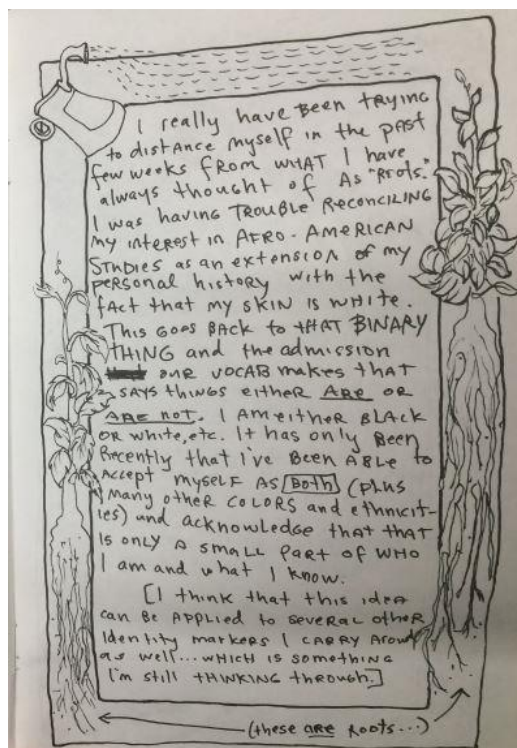 I really have BEEN TRYING
to distance myself in the past
few weeks from WHAT I have
always thought of As "Roots."
I was having TROUBLE RECONCILING
my interest in AFRO-AMERICAN
STUDIES as an extension of my
personal history with the
fact that my SKIN IS WHITE.
This Goes BACK to tHAT BINARY
THING and the admission
our VOCAB makes tHAT
SAYS THINGS EITHER ARE OR
ARE not. I AM either BLACK
OR white, etc. It has only Been
Recently that I've BEEN ABLE to
Accept myself AS Both (plus
many other COLORS and ethnicit-
ies) and acknowledge that tHAT
IS only A small PART OF WHO
I am and what I know.
[I think that this idea
can be APPLIED to several other
Identity markers I CARRY Around
as well... WHICH IS SOMETHING
I'm still THINKING through.]
(these ARE Roots...)